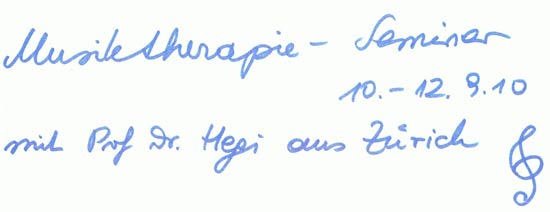 Musiktherapie - Seminar
10.-12.9.10
mit Prof Dr. Hegi aus Zürich